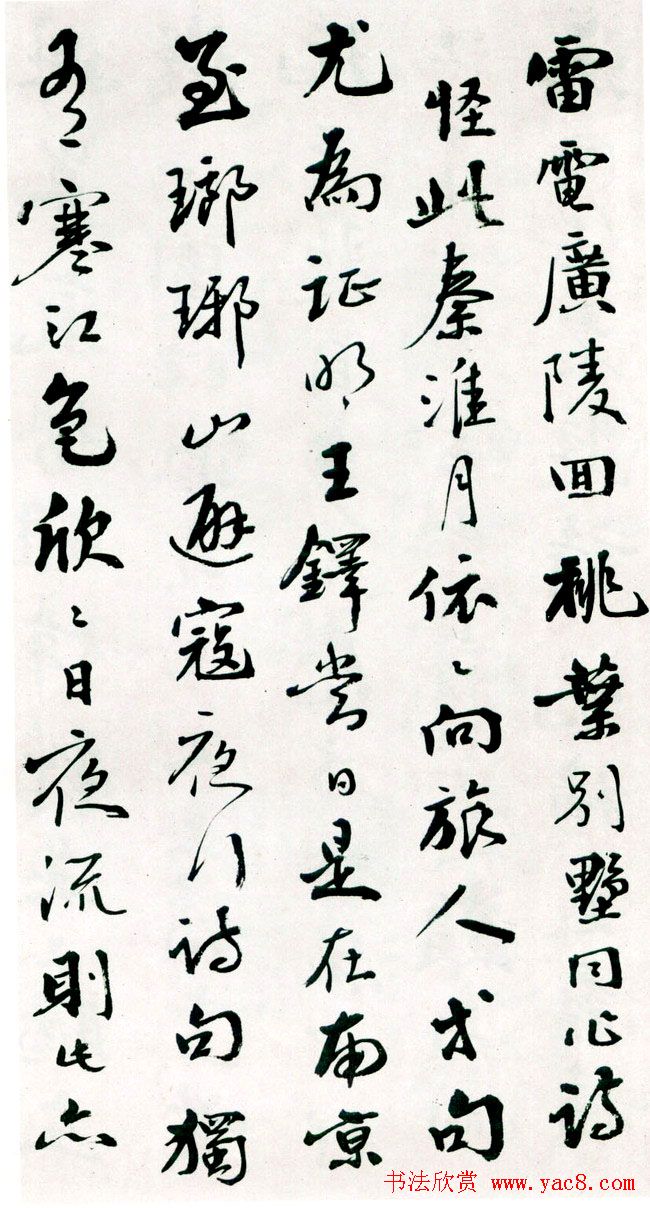 雷電廣陵回桃葉別墅同作诗
怪此秦淮月依〻向旅人才句
尤為証明王鐸當日是在南京
至瑯琊山避寇夜行诗句獨
有寒江色欣〻日夜流則此亦
书法欣赏 www.yac8.com